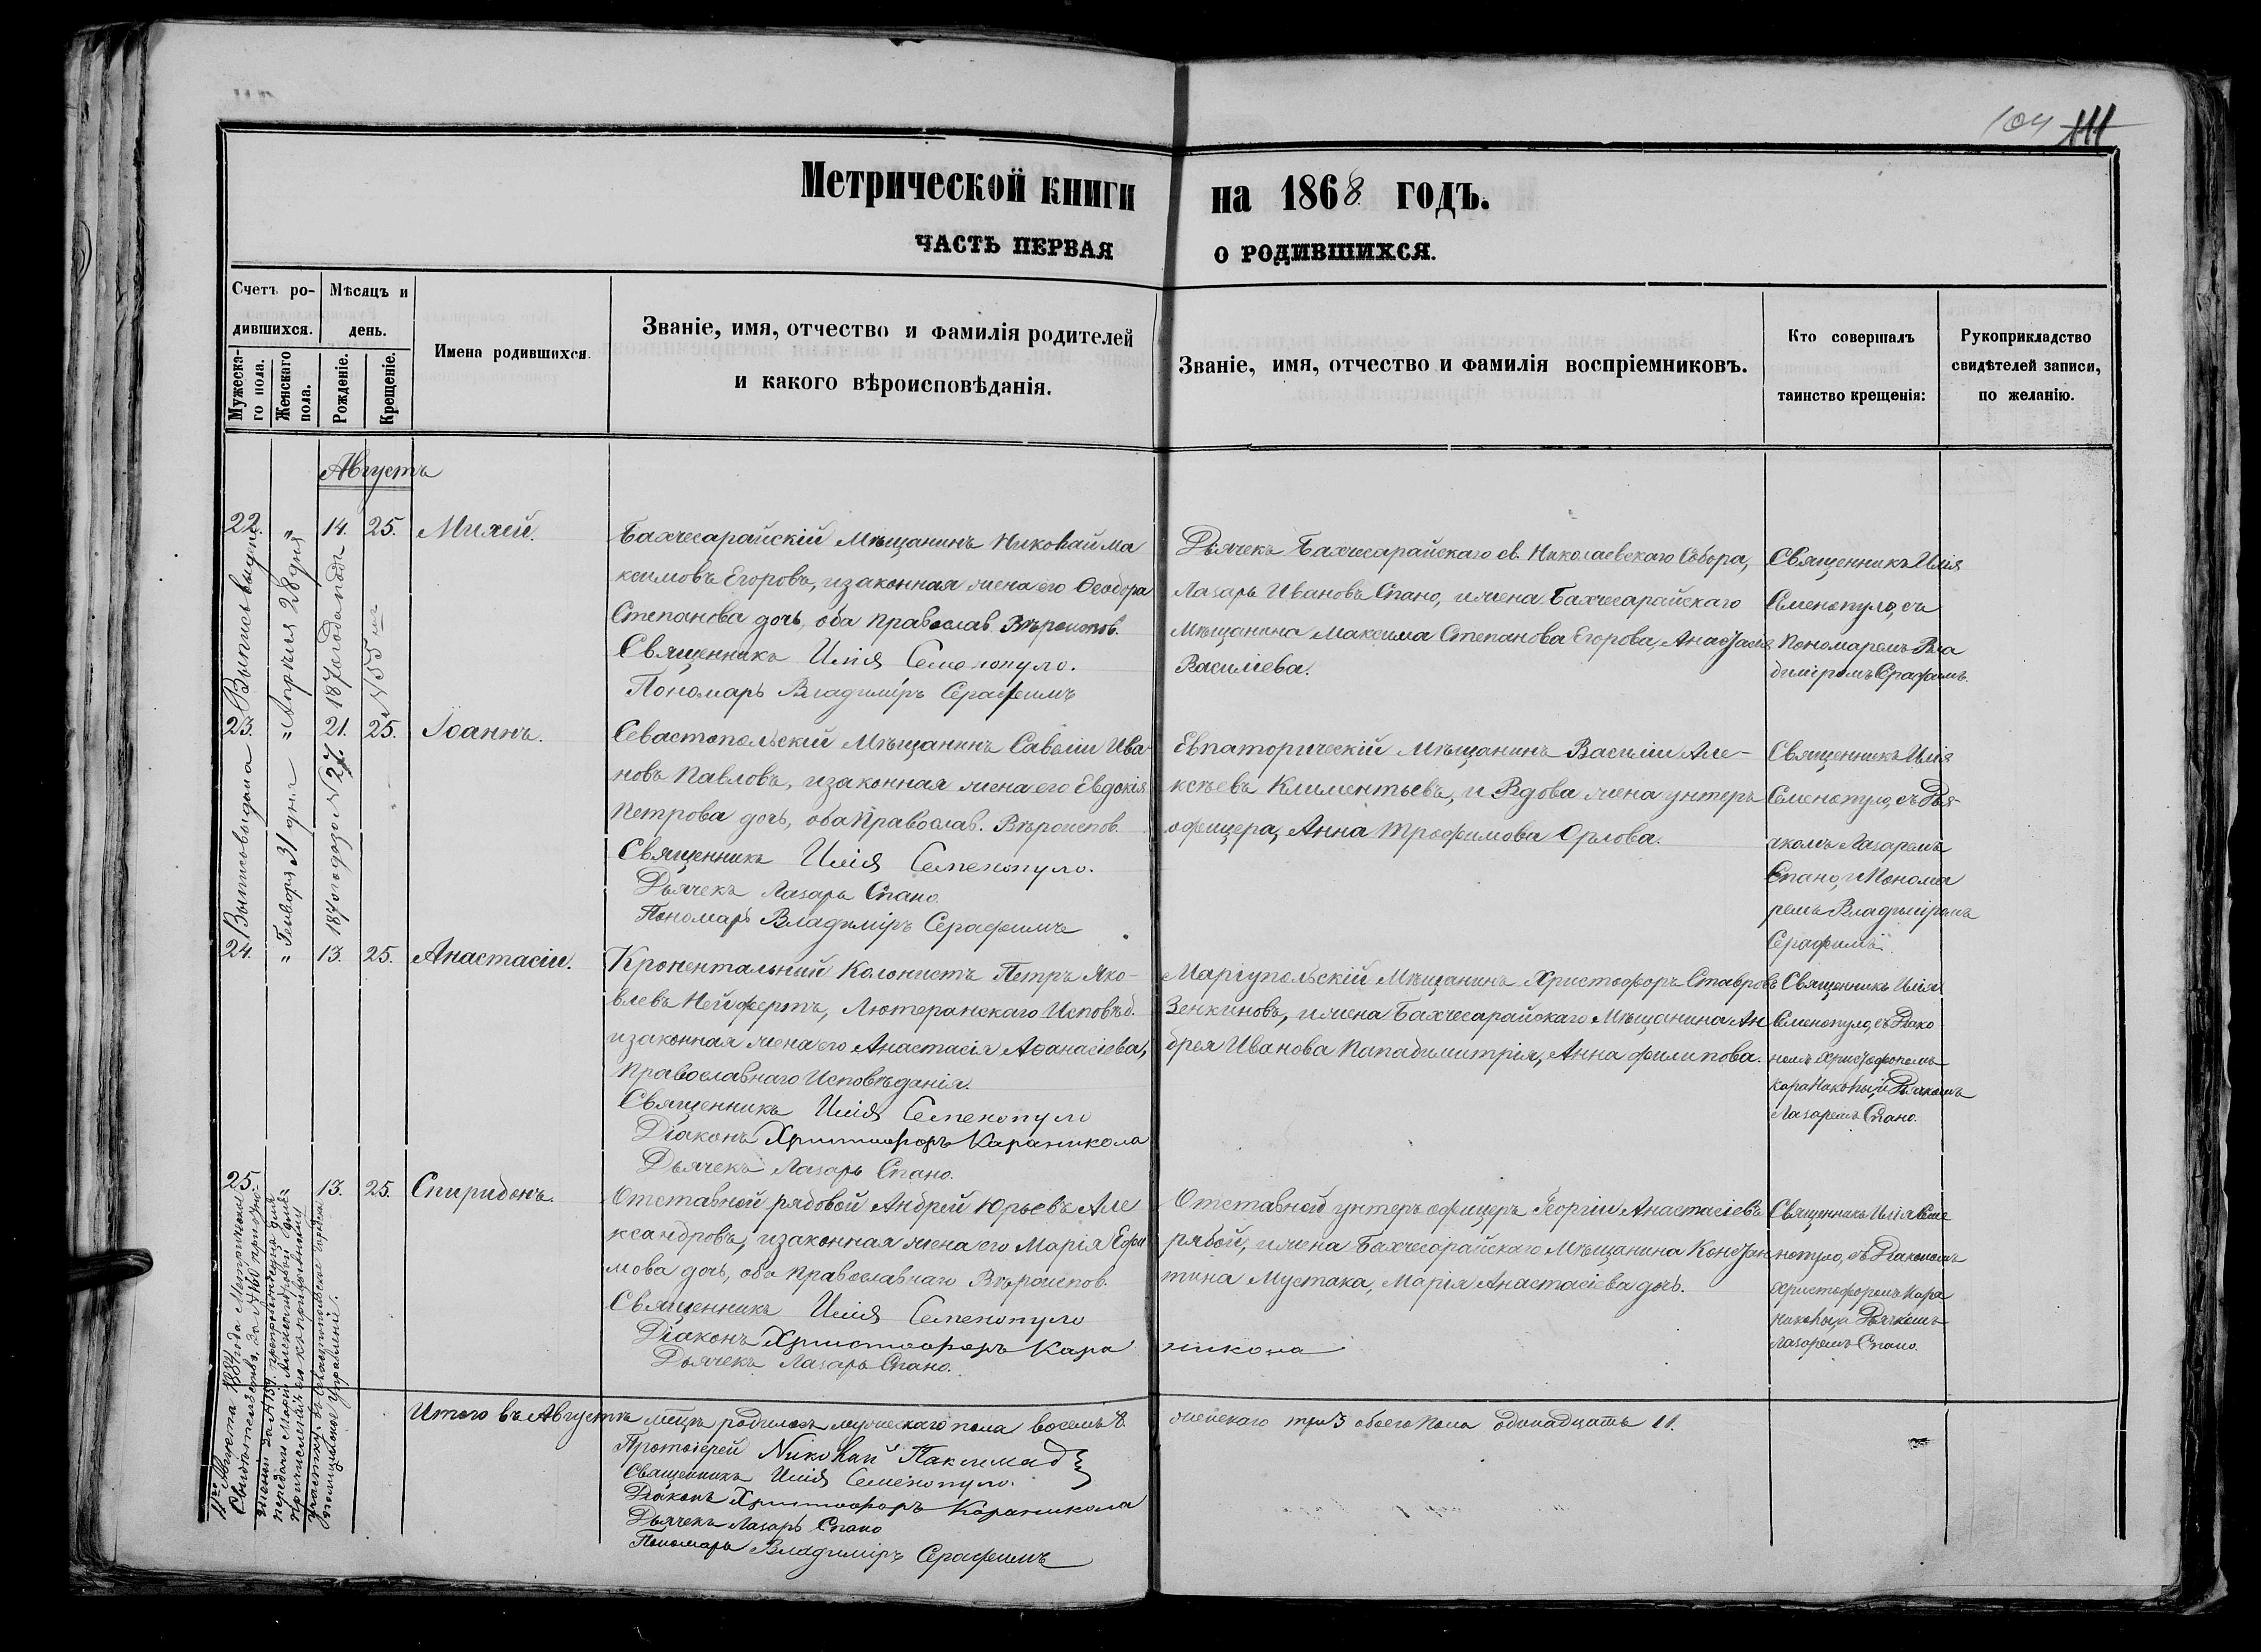 104 111
Метрической книги на 1868 годъ.
ЧАСТЬ ПЕРВАЯ О РОДИВШИХСЯ.
Счетъ ро-
дившихся.
Мужеска-
го пола.
Женскаго
пола.
Мѣсяцъ и
день.
Рожденіе.
Крещеніе.
Имена родившихся.
Званіе, имя, отчество и фамилія родителей
и какого вѣроисповѣданія.
Званіе, имя, отчество и фамилія воспріемниковъ.
Кто совершалъ
таинство крещенія:
Рукоприкладство
свидѣтелей записи,
по желанію.
Августъ
22. " 14. 25. Михей.
Бахчесарайскій Мѣщанинъ Николай Ма
ксимовъ Егоровъ, и законная жена его Ѳеодора
Степанова дочь, оба Православ. Вѣроиспов.
Священникъ Илія Семенопуло.
Пономарь Владиміръ Серафимъ
Дьячекъ Бахчесарайскаго св. Николаевскаго Собора,
Лазарь Ивановъ Спано, и жена Бахчесарайскаго
Мѣщанина Максима Степанова Егорова, Анастасія
Василіева.
Священникъ Илія
Семенопуло, съ
Пономаремъ Вла
диміромъ Серафимъ.
Выпись выдана
Апрѣля 28 дня
187 года подъ
№ 55
23. " 21. 25. Іоаннъ.
Севастопольскій Мѣщанинъ Савелій Ива
новъ Павловъ, и законная жена его Евдокія
Петрова дочь, оба Православ. Вѣроиспов.
Священникъ Илія Семенопуло.
Дьячекъ Лазарь Спано.
Пономарь Владиміръ Серафимъ
Евпаторическій Мѣщанинъ Василій Але-
ксѣевъ Климентьевъ, и Вдова жена унтеръ
офицера, Анна Трофимова Орлова.
Священникъ Илія
Семенопуло, съ Дья-
чкомъ Лазаремъ
Спано, и Понома
ремъ Владиміромъ
Серафимъ
Выпись выдана
Генворя 31 дня
1870го года № 27.
24. " 13. 25. Анастасій.
Кронентальный Колонистъ Петръ Яко-
влевъ Нейфертъ, Лютеранскаго Исповѣд.
и законная жена его Анастасія Аѳанасіева,
Православнаго Исповѣданія.
Священникъ Илія Семенопуло
Діаконъ Христофоръ Караникола
Дьячекъ Лазарь Спано.
Маріупольскій Мѣщанинъ Христофоръ Ставровъ
Зенкиновъ, и жена Бахчесарайскаго Мѣщанина Ан
дрея Иванова Пападимитрія, Анна Филипова.
Священникъ Илія
Семенопуло, съ Діако
номъ Христофоромъ
Караникола, и Дьячкомъ
Лазаремъ Спано.
25. 13. 25. Спиридонъ.
Отставной рядовой Андрей Юрьевъ Але
ксандровъ, и законная жена его Марія Ефи
мова дочь, оба Православнаго Вѣроиспов.
Священникъ Илія Семенопуло
Діаконъ Христофоръ Кара никола
Дьячекъ Лазарь Спано.
Отставной унтеръ офицеръ Георгій Анастасіевъ
рябой, и жена Бахчесарайскаго Мѣщанина Констан
тина Мустака, Марія Анастасіева дочь.
Священникъ Илія Семе
нопуло, съ Діакономъ
Христофоромъ Кара
никола, и Дьячкомъ
Лазаремъ Спано.
11го Августа 1884 года Метрическое
Свидѣтельство, за № 160
за № 159. препровождена для
передачи Маріи Александровой для
причисленія его къ призывному
участку, въ Севастопольское Городское
Полиціонное Управленіе.
Итого въ Августѣ мцѣ родилось мужескаго пола восемъ 8. женскаго три 3 обоего пола одинадцать 11.
Протоіерей Николай Паксимад
Священникъ Илія Семенопуло.
Діаконъ Христофоръ Караникола
Дьячекъ Лазарь Спано
Пономарь Владиміръ Серафимъ